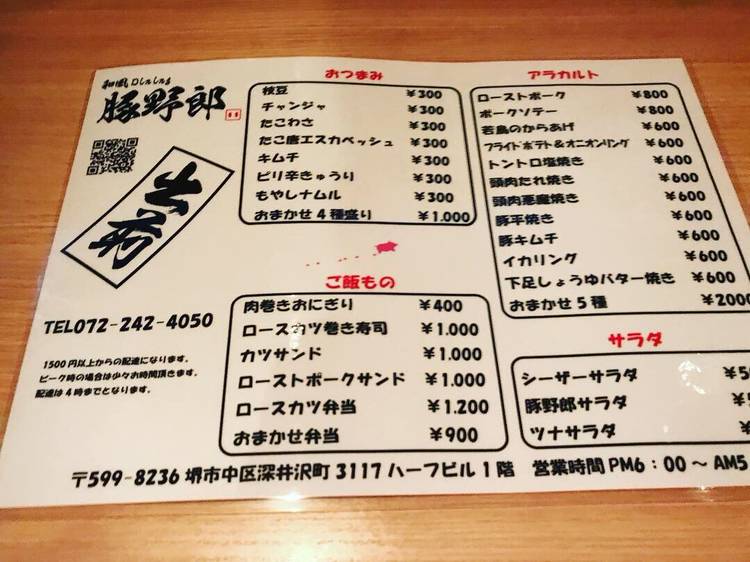 和風
豚野郎
出前
TEL072-242-4050
1500円以上からの配達になります。
ピーク時の場合は少々お時間頂きます。
配達は4時までとなります。
おつまみ
枝豆 ¥300
チャンジャ ¥300
たこわさ ¥300
たこ唐エスカベッシュ ¥300
キムチ ¥300
ピリ辛きゅうり ¥300
もやしナムル ¥300
おまかせ4種盛り ¥1.000
ご飯もの
肉巻きおにぎり ¥400
ロースカツ巻き寿司 ¥1.000
カツサンド ¥1.000
ローストポークサンド ¥1.000
ロースカツ弁当 ¥1.200
おまかせ弁当 ¥900
アラカルト
ローストポーク ¥800
ポークソテー ¥800
若鳥のからあげ ¥600
フライドポテト&オニオンリング ¥600
トントロ塩焼き ¥600
頭肉たれ焼き ¥600
頭肉悪魔焼き ¥600
豚平焼き ¥600
豚キムチ ¥600
イカリング ¥600
下足しょうゆバター焼き ¥600
おまかせ5種 ¥2000
サラダ
シーザーサラダ
豚野郎サラダ
ツナサラダ
〒599-8236 堺市中区深井沢町3117ハーフビル1階 営業時間PM6:00〜AM5